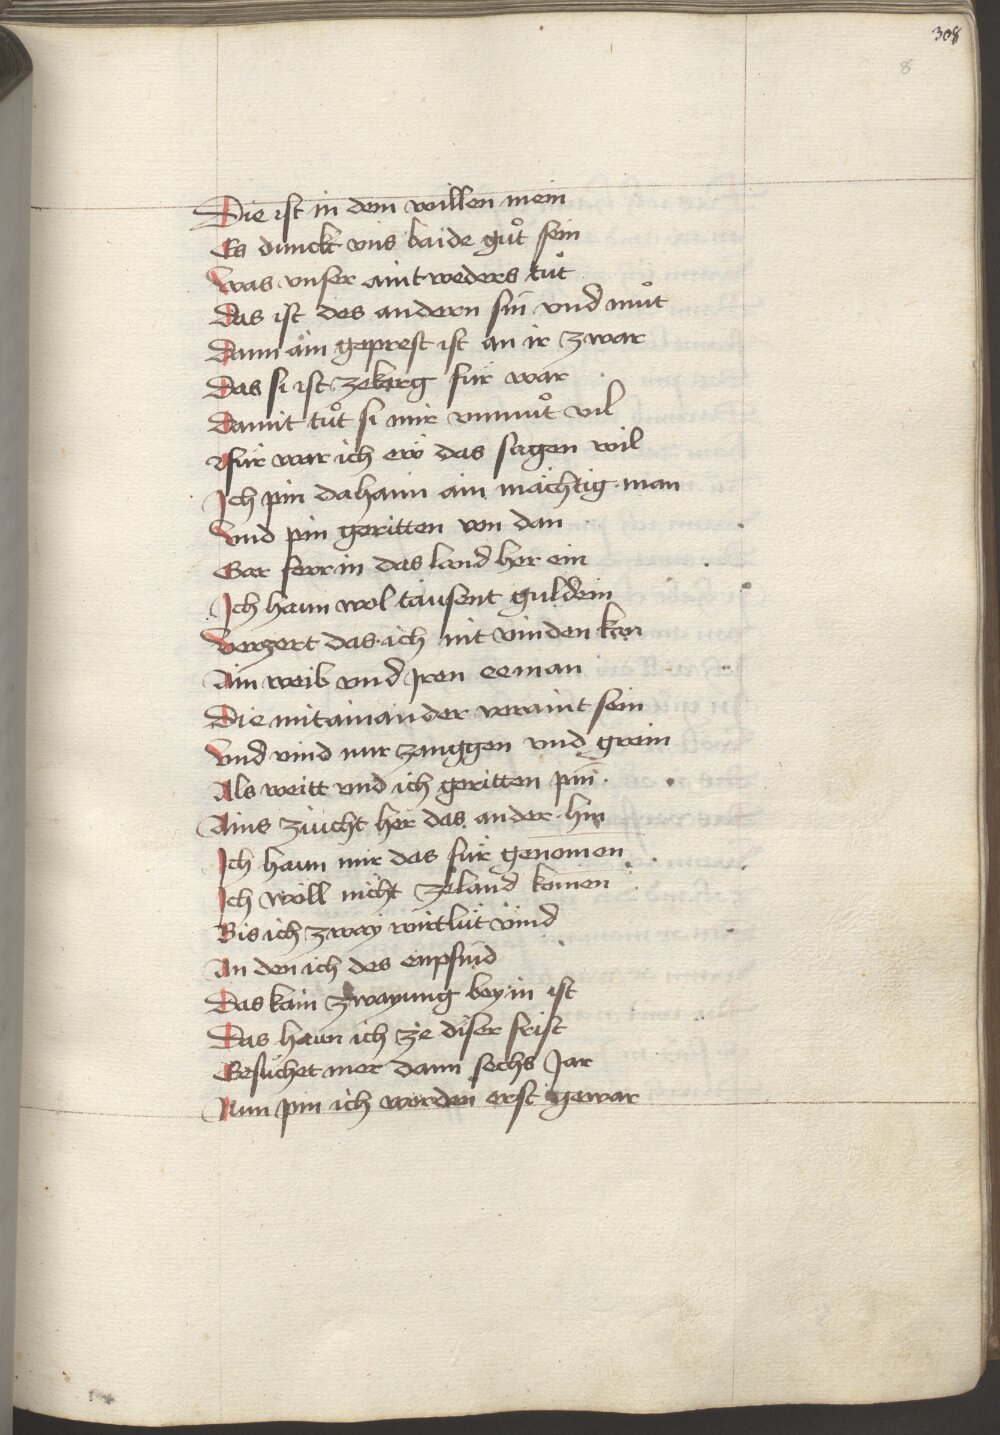 308
8
Die ist in dem willen mein
Es dunckt vns baide guͦt sein
Was vnser aintweders tuͦt
Das ist des andern sin vnd muͦt
Dann ain geprest ist an ir zwar
Das si ist zekarg für war
Damit tuͦt si mir vnmuͦt vil
Für war ich eẅ das sagen wil
Ich pin dahaim ain mächtig man
Vnd pin geritten von dan
Gar ferr in das land her ein
Ich haun wol tausent guldein
Verzert das ich nit vinden kan
Ain weib vnd Iren eeman
Die mitainander veraint sein
Vnd vind nur zanggen vnd grein
Als weitt vnd ich geritten pin
Ains zücht her das ander hin
Ich haun mir das für genomen
Ich wöll nicht ze land komen
Bis ich zway wirtlüt vind
An den ich des enpfind
Das kain zwayung bey in ist
Das haun ich ze diser frist
Gesuchet mer dann sechs Jar
Nun pin ich worden erst gewar